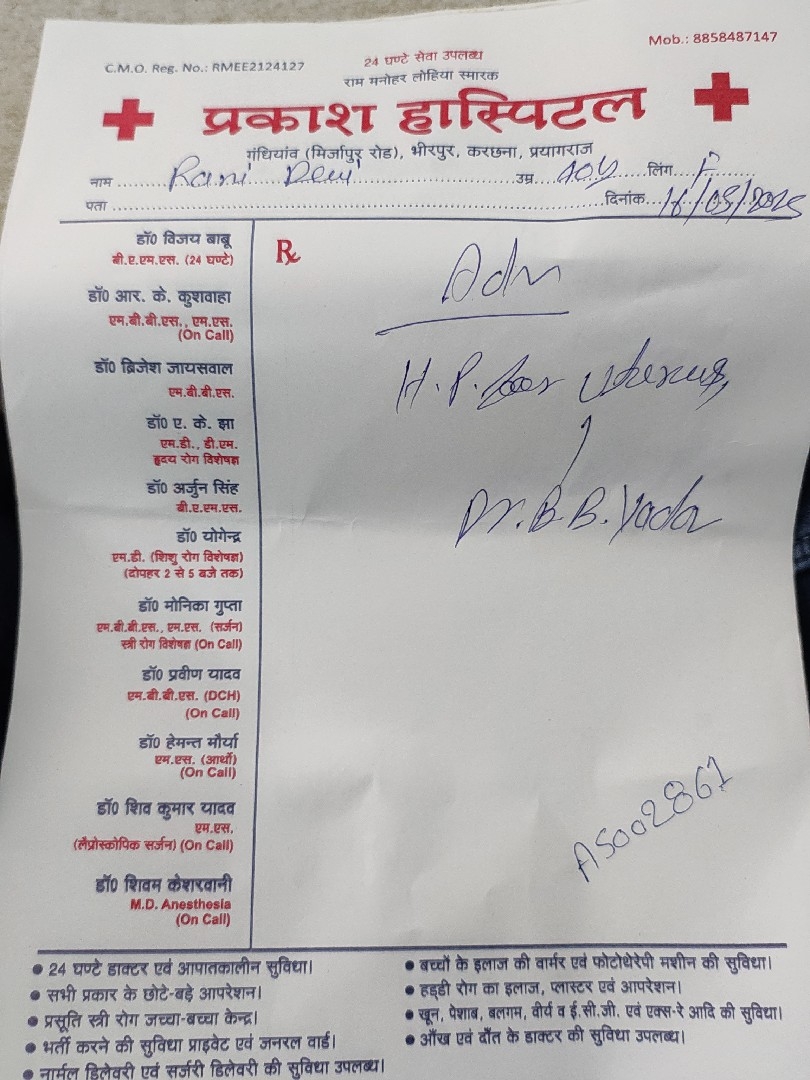 Mob.: 8858487147
C.M.O. Reg. No.: RMEE2124127
24 घण्टे सेवा उपलब्ध
राम मनोहर लोहिया स्मारक
प्रकाश हास्पिटल
गंधियांव (मिर्जापुर रोड), भीरपुर, करछना, प्रयागराज
नाम Rani Devi उम्र 40y लिंग F
पता दिनांक 16/05/2025
डॉ0 विजय बाबू
बी.ए.एम.एस. (24 घण्टे)
डॉ0 आर. के. कुशवाहा
एम.बी.बी.एस., एम.एस.
(On Call)
डॉ0 ब्रिजेश जायसवाल
एम.बी.बी.एस.
डॉ0 ए. के. झा
एम.डी., डी.एम.
हृदय रोग विशेषज्ञ
डॉ0 अर्जुन सिंह
बी.ए.एम.एस.
डॉ0 योगेन्द्र
एम.डी. (शिशु रोग विशेषज्ञ)
(दोपहर 2 से 5 बजे तक)
डॉ0 मोनिका गुप्ता
एम.बी.बी.एस., एम.एस. (सर्जन)
स्त्री रोग विशेषज्ञ (On Call)
डॉ0 प्रवीण यादव
एम.बी.बी.एस. (DCH)
(On Call)
डॉ0 हेमन्त मौर्या
एम.एस. (आर्थो)
(On Call)
डॉ0 शिव कुमार यादव
एम.एस.
(लैप्रोस्कोपिक सर्जन) (On Call)
डॉ0 शिवम केशरवानी
M.D. Anesthesia
(On Call)
Rx
Adv
H.P. for uterus,
Dr. B. B. Yada
AS002861
● 24 घण्टे डाक्टर एवं आपातकालीन सुविधा।
● सभी प्रकार के छोटे-बड़े आपरेशन।
● प्रसूति स्त्री रोग जच्चा-बच्चा केन्द्र।
● भर्ती करने की सुविधा प्राइवेट एवं जनरल वार्ड।
● नार्मल डिलेवरी एवं सर्जरी डिलेवरी की सुविधा उपलब्ध।
● बच्चों के इलाज की वार्मर एवं फोटोथेरेपी मशीन की सुविधा।
● हड्डी रोग का इलाज, प्लास्टर एवं आपरेशन।
● खून, पेशाब, बलगम, वीर्य व ई.सी.जी. एवं एक्स-रे आदि की सुविधा।
● आँख एवं दाँत के डाक्टर की सुविधा उपलब्ध।